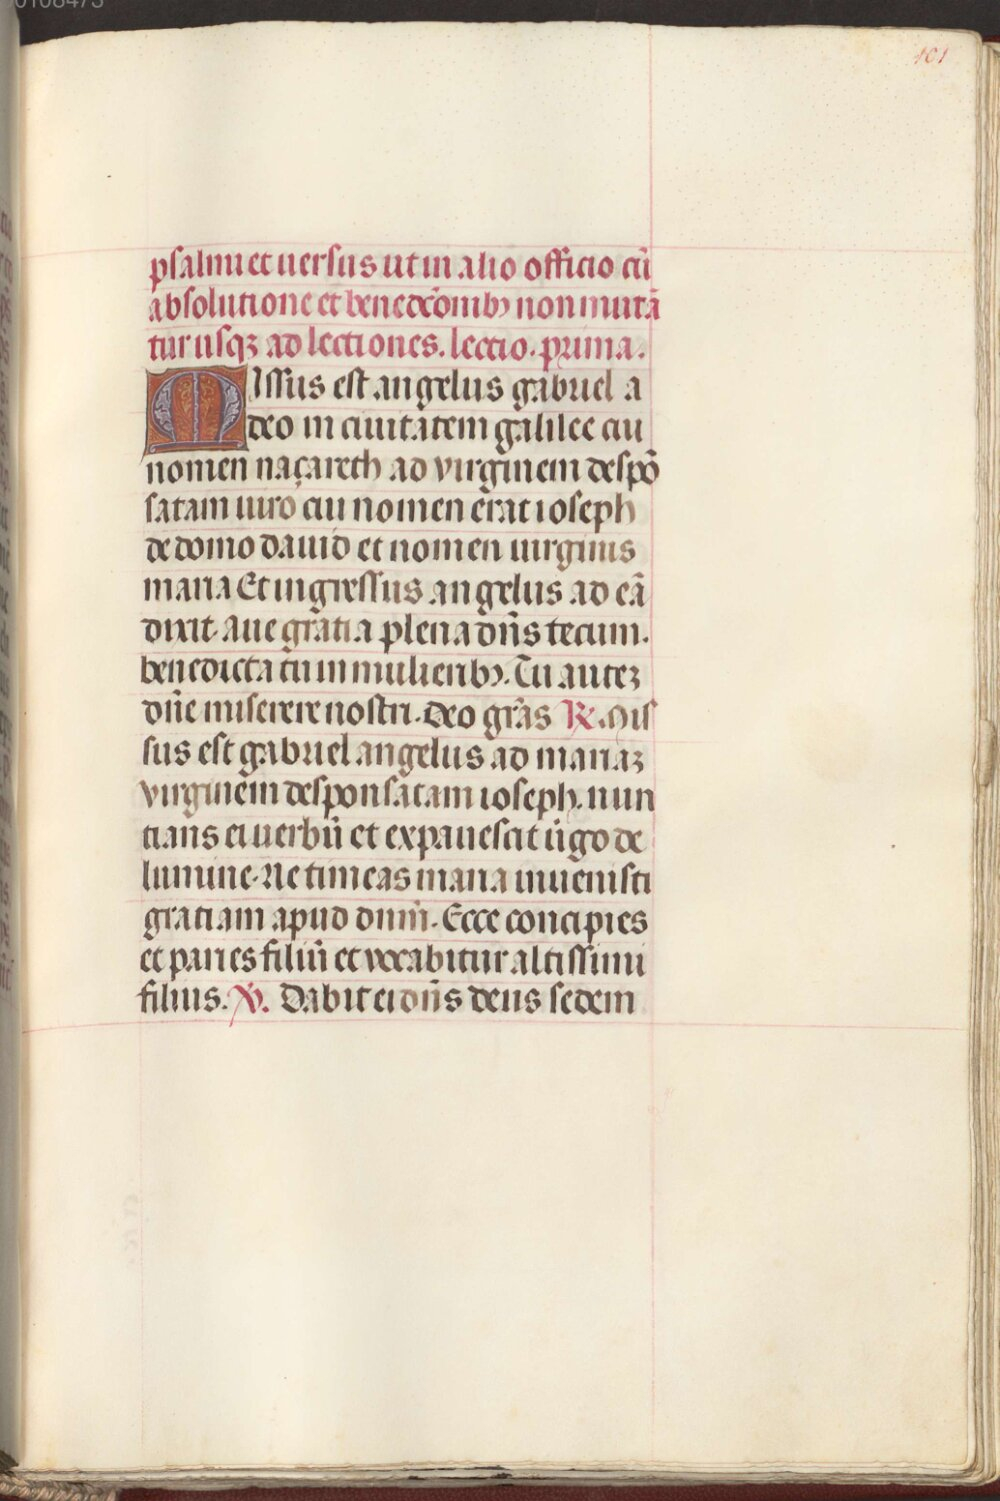 101
psalmi et uersus ut in alio officio cū
absolutione et benedcōnibꝫ non mutā
tur usqꝫ ad lectiones. lectio. prima.
MIssus est angelus gabriel a
deo in ciuitatem galilee cui
nomen naçareth ad virginem despō
satam uiro cui nomen erat ioseph
de domo dauid et nomen uirginis
maria Et ingressus angelus ad eā
dixit. aue gratia plena dn̄s tecum.
benedicta tu in mulieribꝫ. Tu auteꝫ
dn̄e miserere nostri. deo gr̄as ℟. Mis
sus est gabriel angelus ad mariaꝫ
virginem desponsatam ioseph. nun
tians ei uerbū et expauescit ūgo de
lumine. Ne timeas maria inuenisti
gratiam apud dnm̄. Ecce concipies
et paries filiū et vocabitur altissimi
filius. ℣. Dabit ei dn̄s deus sedem